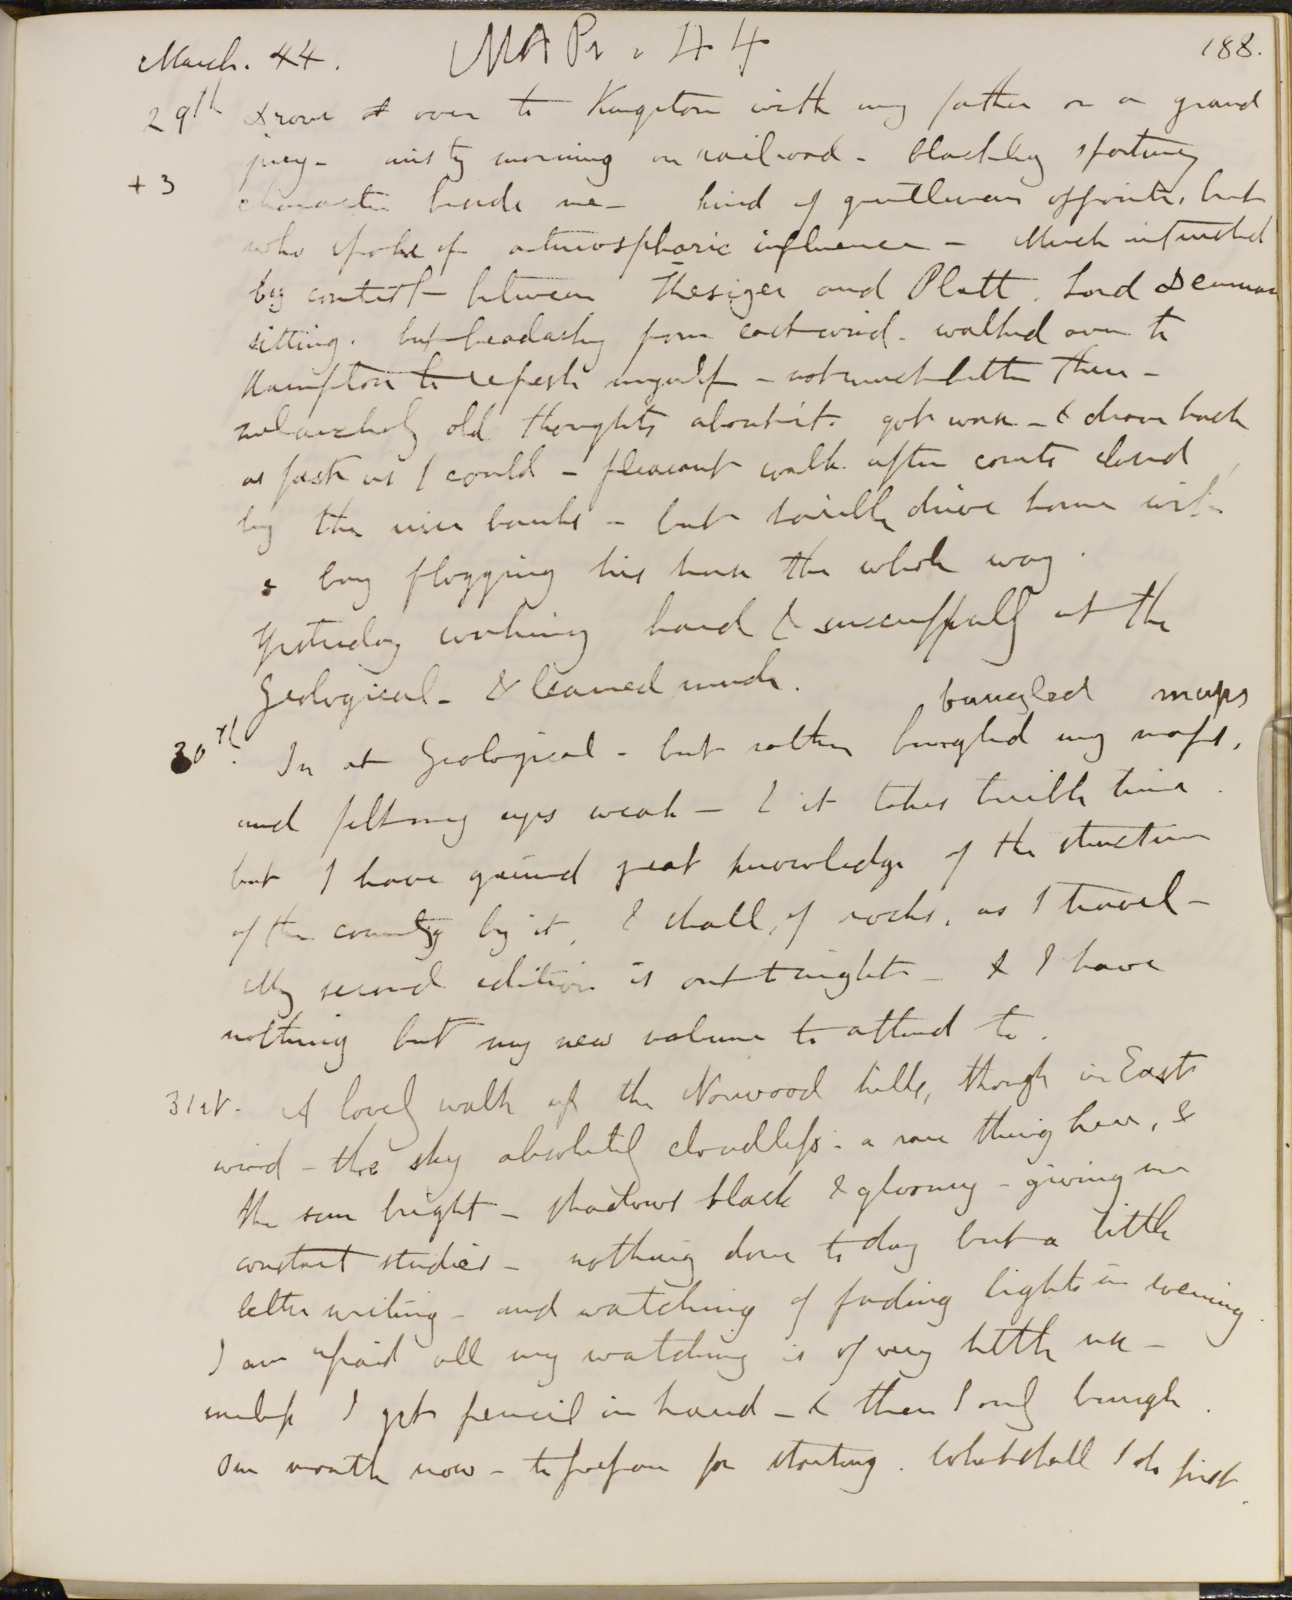 March. 44. MAPs. 44 188.
29th Drove over to Kingston with my father on a grand
jury - misty morning on railroad - blackleg sporting
+3 character beside me - kind of gentleman opposite, but
who spoke of atmospheric influence - Much interested
by contest between Thesiger and Platt. Lord Denman
sitting. but headachy from east wind. walked over to
Hampton to refresh myself - not much better there -
melancholy old thoughts about it. got worse - & drove back
as fast as I could - pleasant walk after courts closed
by the river banks - but terrible drive home with
a boy flogging his horse the whole way.
Yesterday working hard & successfully at the
Geological - & learned much.
bungled maps
30th. In at Geological - but rather bungled my maps,
and felt my eyes weak - & it takes terrible time.
but I have gained great knowledge of the structure
of the country by it, & shall, of rocks, as I travel -
My second edition is out tonight - & I have
nothing but my new volume to attend to.
31st. A lovely walk up the Norwood hills, though in East
wind - the sky absolutely cloudless - a rare thing here, &
the sun bright - shadows black & gloomy - giving me
constant studies - nothing done to day but a little
letter writing - and watching of fading lights in evening.
I am afraid all my watching is of very little use -
unless I get pencil in hand - & then I only bungle.
One month now - to prepare for starting. What shall I do first.